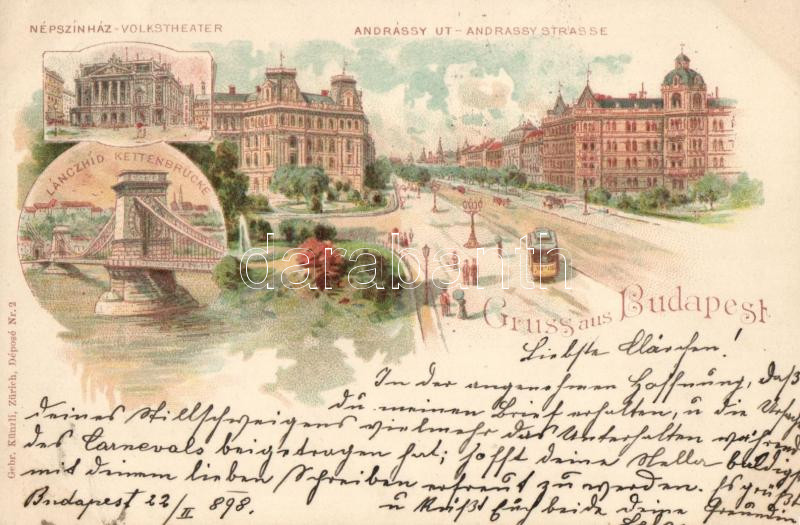 NÉPSZÍNHÁZ - VOLKSTHEATER
ANDRÁSSY UT - ANDRASSY STRASSE
LÁNCZHID KETTENBRÜCKE
darabanth.com
Gruss aus Budapest
Gebr. Künzli, Zürich, Déposé Nr. 2
Liebste Clärchen!
In der angenehmen Hoffnung, daß
du meinen Brief erhalten, u die
deines Stillschweigens vielmehr das Unterhalten während
des Carnevals beigetragen hat; hofft deine Stella baldigst
mit deinem lieben Schreiben erfreut zu werden. Es grüßt
u Küßt Euch beide deine Freundin
Budapest 22/II 898.